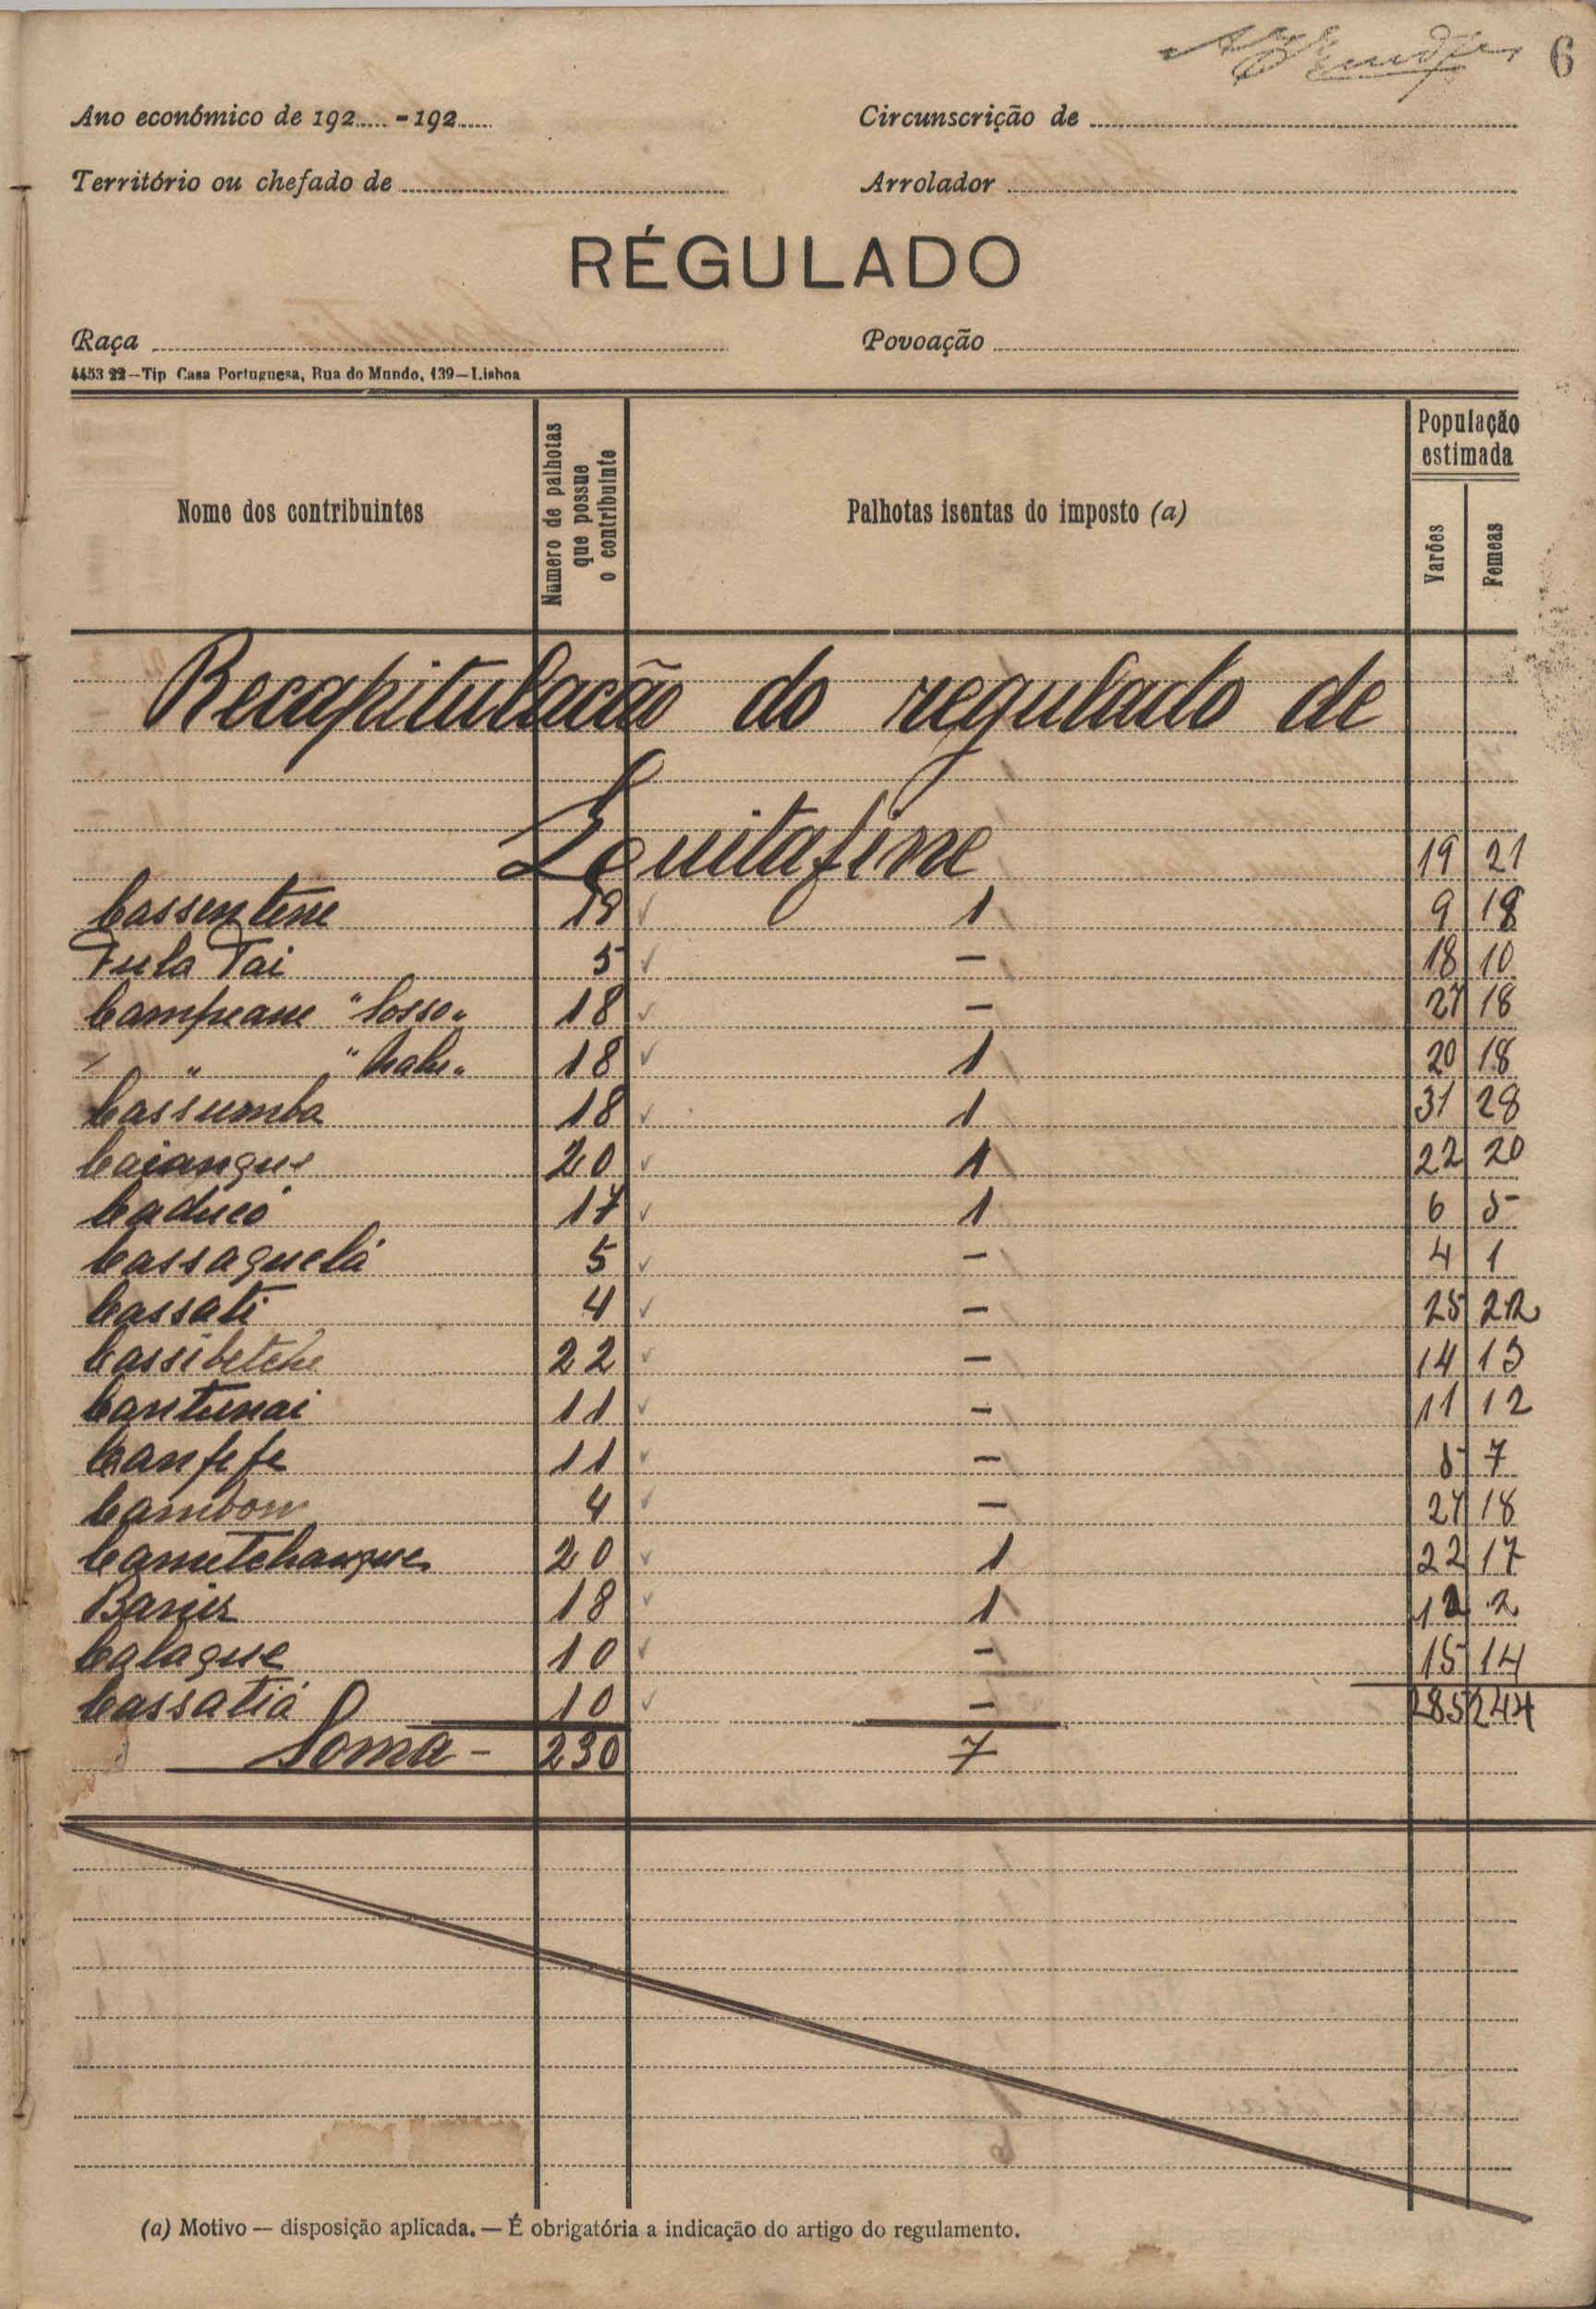 6
Ano económico de 192..... - 192......
Circunscrição de
Território ou chefado de
Arrolador
RÉGULADO
Raça
Povoação
4453 22—Tip Casa Portuguesa, Rua do Mundo, 139—Lisboa
Nome dos contribuintes
Número de palhotas que possue o contribuinte
Palhotas isentas do imposto (a)
População estimada
Varões
Femeas
Recapitulacão do regulado de
Quitafine 19 21
Cassentene 19 ✓ 1 9 18
Fula Tai 5 ✓ — 18 10
Campeane "Sosso" 18 ✓ — 27 18
" " " 18 ✓ 1 20 18
Cassumba 18 ✓ 1 31 28
Caiangue 20 ✓ 1 22 20
Caducó 17 ✓ 1 6 5
Cassaguelá 5 ✓ — 4 1
Cassati 4 ✓ — 25 22
Cassibetche 22 ✓ — 14 13
Cantunai 11 ✓ — 11 12
Canfefe 11 ✓ — 5 7
Cambom 4 ✓ — 27 18
Camitchangue 20 ✓ 1 22 17
Banir 18 ✓ 1 2
Calaque 10 ✓ — 15 14
Cassatiá 10 ✓ — 285 244
Soma - 230 7
(a) Motivo — disposição aplicada. — É obrigatória a indicação do artigo do regulamento.